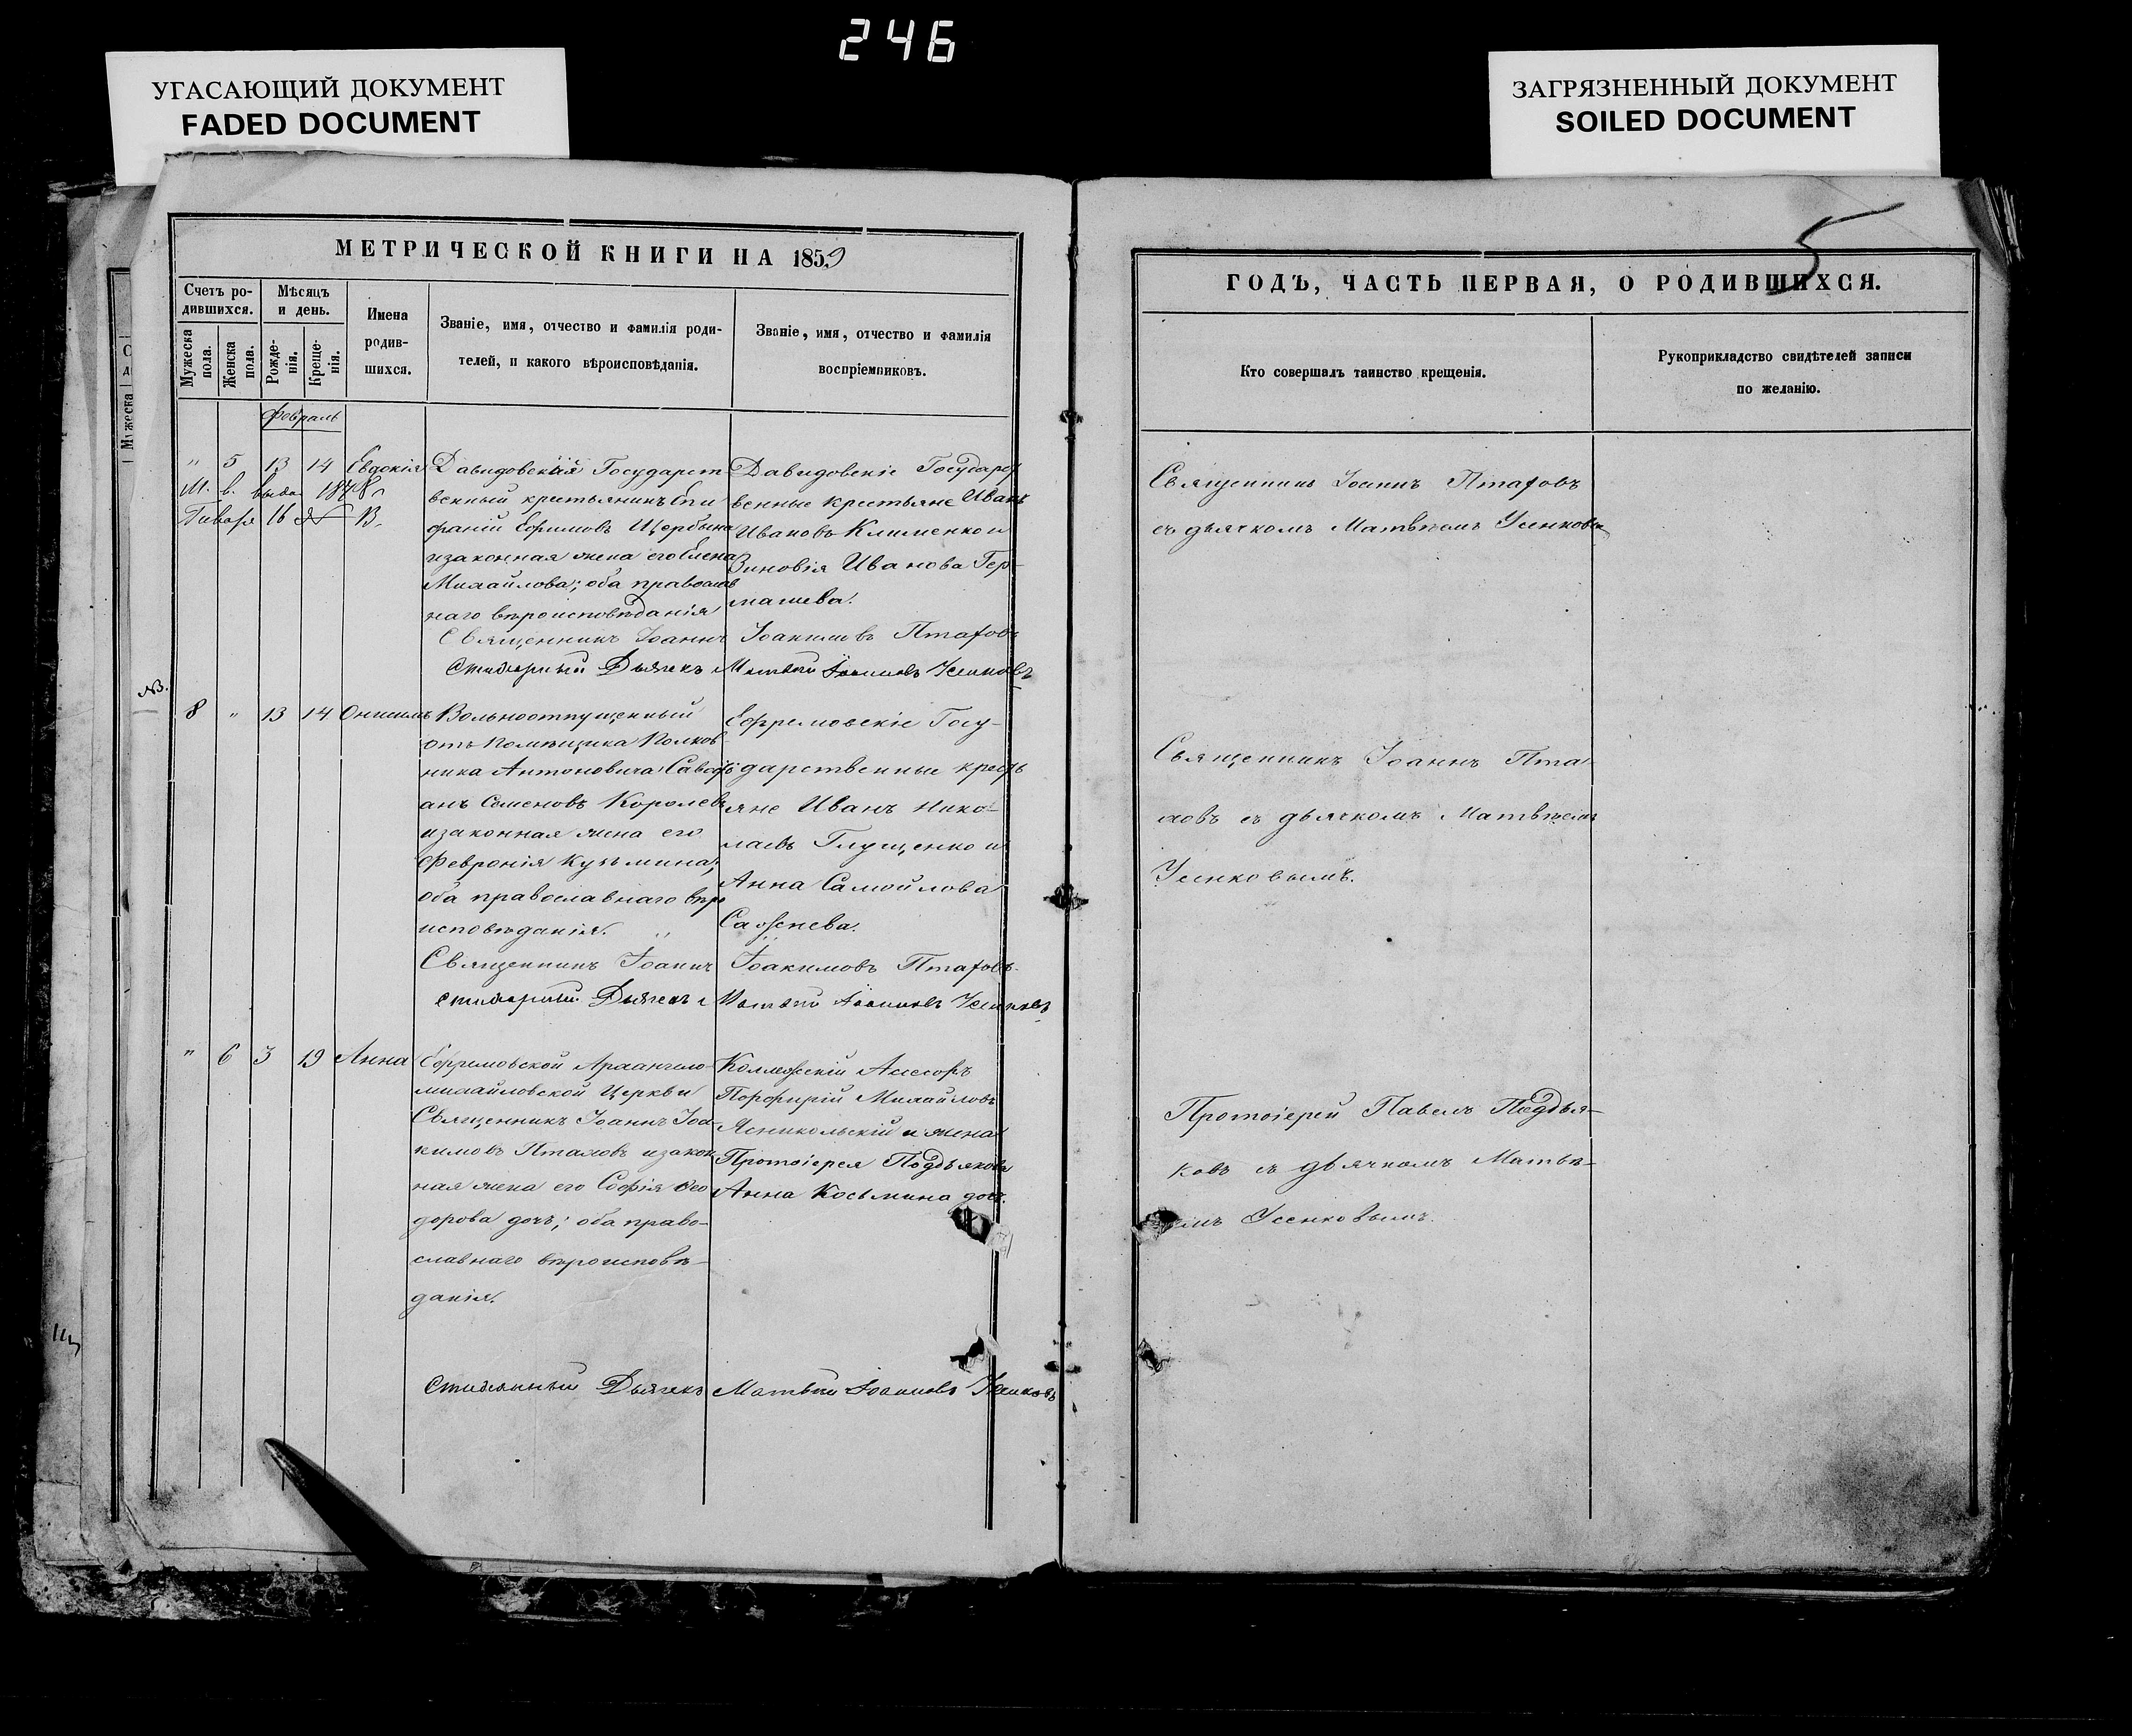 246
УГАСАЮЩИЙ ДОКУМЕНТ
FADED DOCUMENT
ЗАГРЯЗНЕННЫЙ ДОКУМЕНТ
SOILED DOCUMENT
МЕТРИЧЕСКОЙ КНИГИ НА 1859
Счетъ ро-
дившихся.
Мужеска
пола.
Женска
пола.
Мѣсяцъ
и день.
Рожде-
нія.
Креще-
нія.
Имена
родив-
шихся.
Званіе, имя, отчество и фамилія роди-
телей, и какого вѣроисповѣданія.
Званіе, имя, отчество и фамилія
воспріемниковъ.
Февраль
" 5 13 14 Евдокія
М. в. выда 
Генваря 16 В.
Давидовскій Государст-
венный крестьянинъ Епи
фаній Ефимовъ Щербина
и законная жена его Елена
Михайлова; оба православ
наго вѣроисповѣданія
Давидовскіе Государст
венные крестьяне Иванъ
Ивановъ Клименко и
Зиновія Иванова Гер-
машева.
Священникъ Іоаннъ Іоакимовъ Птаховъ
Стихарный Дьячекъ Матвѣй Усенковъ
NB.
8 " 13 14 Онисимъ
Вольноотпущенный
отъ помѣщика Полков
ника Антоновича
анъ Семеновъ Королевъ
и законная жена его
Февронія Кузьмина;
оба православнаго вѣро
исповѣданія.
Ефремовскіе Госу-
дарственные кресть
яне Иванъ Нико-
лаевъ Глущенко и
Анна Самойлова
Священникъ Іоаннъ Іоакимовъ Птаховъ
Стихарный Дьячекъ Матвѣй Усенковъ
" 6 3 19 Анна
Ефремовской Архангело-
михайловской Церкви
Священникъ Іоаннъ Іоа-
кимовъ Птаховъ и закон
ная жена его Софія Ѳео
дорова дочь; оба право-
славнаго вѣроисповѣ-
данія.
Коллежскій Асессоръ
Порфирій Михайловъ
Ясникольскій и жена
Протоіерея Подъякова
Анна Косьмина доч.
Стихарный Дьячекъ Матвѣй Усенковъ
5
ГОДЪ, ЧАСТЬ ПЕРВАЯ, О РОДИВШИХСЯ.
Кто совершалъ таинство крещенія.
Рукоприкладство свидѣтелей записи
по желанію.
Священникъ Іоаннъ Птаховъ
съ дьячкомъ Матвѣемъ Усенковы
Священникъ Іоаннъ Пта-
ховъ съ дьячкомъ Матвѣемъ
Усенковымъ.
Протоіерей Павелъ Подъя-
ковъ съ дьячкомъ Матвѣ-
емъ Усенковымъ.